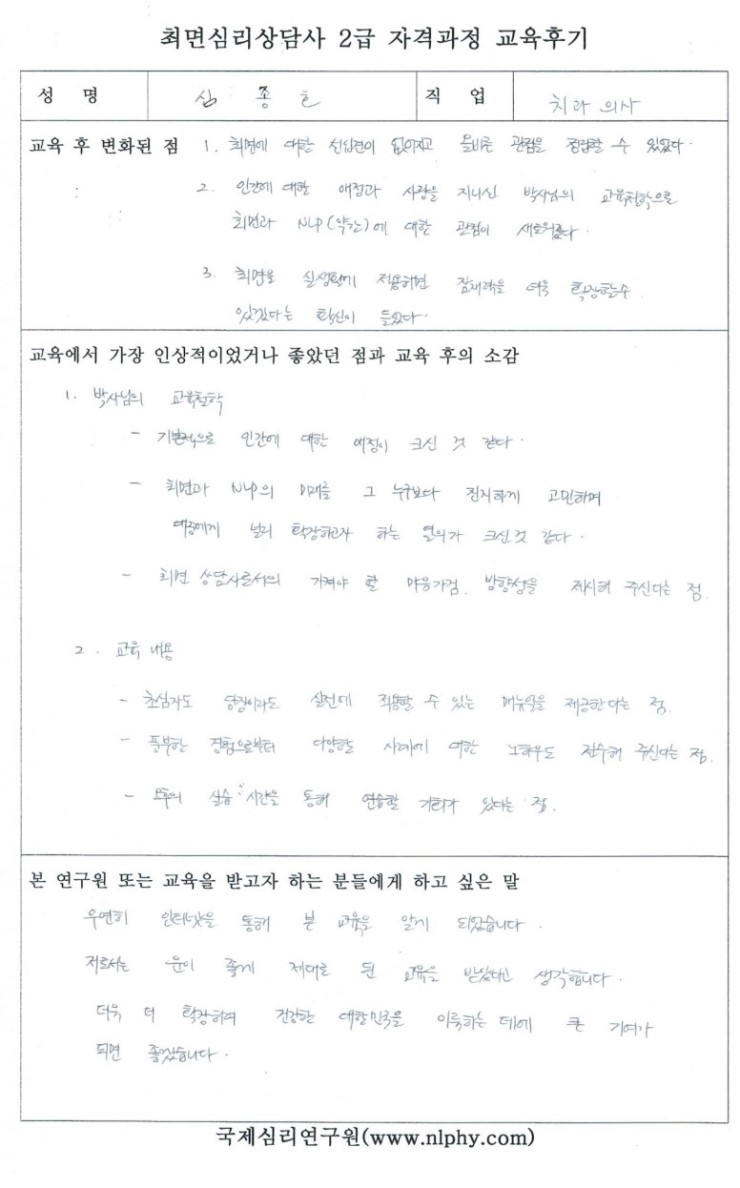 최면심리상담사 2급 자격과정 교육후기
성 명 심 종 호 직 업 치과 의사
교육 후 변화된 점 1. 최면에 대한 선입견이 없어지고 올바른 관점을 정립할 수 있었다.
2. 인간에 대한 애정과 사랑을 지니신 박사님의 교육철학으로
최면과 NLP(약간)에 대한 관점이 새로워졌다.
3. 최면을 실생활에 적용하면 잠재력을 더욱 확장할수
있겠다는 확신이 들었다.
교육에서 가장 인상적이었거나 좋았던 점과 교육 후의 소감
1. 박사님의 교육철학
- 기본적으로 인간에 대한 애정이 크신 것 같다.
- 최면과 NLP의 미래를 그 누구보다 진지하게 고민하며
대중에게 널리 확장하고자 하는 열의가 크신것 같다.
- 최면 상담사로서의 가져야 할 마음가짐, 방향성을 제시해 주신다는 점.
2. 교육 내용
- 초심자도 당장이라도 실전에 적용할 수 있는 매뉴얼을 제공한다는 점.
- 풍부한 경험으로부터 다양한 사례에 대한 노하우도 전수해 주신다는 점.
- 오후의 실습 시간을 통해 연습할 기회가 있다는 점.
본 연구원 또는 교육을 받고자 하는 분들에게 하고 싶은 말
우연히 인터넷을 통해 본 교육을 알게 되었습니다.
저로서는 운이 좋게 제대로 된 교육을 받았다고 생각합니다.
더욱 더 확장하여 건강한 대한민국을 이룩하는 데에 큰 기여가
되면 좋겠습니다.
국제심리연구원(www.nlphy.com)